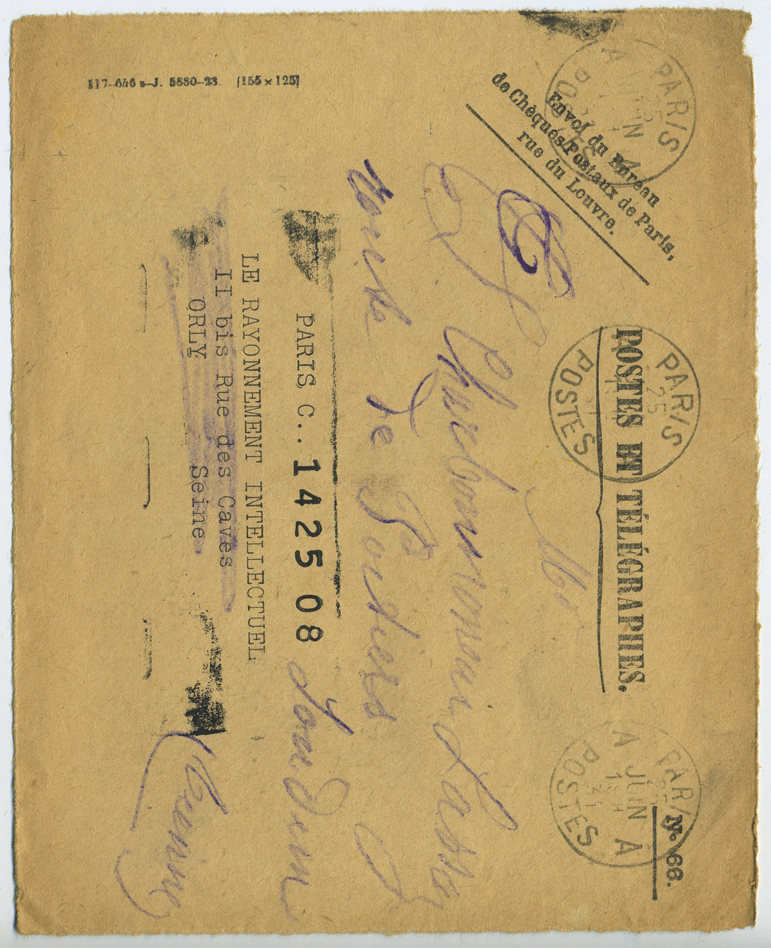 117-646 s-J. 5880-23. [155 × 125]
Envoi du Bureau
de Chèques Postaux de Paris,
rue du Louvre.
POSTES ET TÉLÉGRAPHES.
N° 66.
PARIS
25
JUIN
POSTES
PARIS
25
POSTES
PARIS
25
A JUIN A
POSTES
Charbonneau Lassay
route de Poitiers
Loudun
(Vienne)
PARIS C.. 142508
LE RAYONNEMENT INTELLECTUEL
II bis Rue des Caves
ORLY Seine